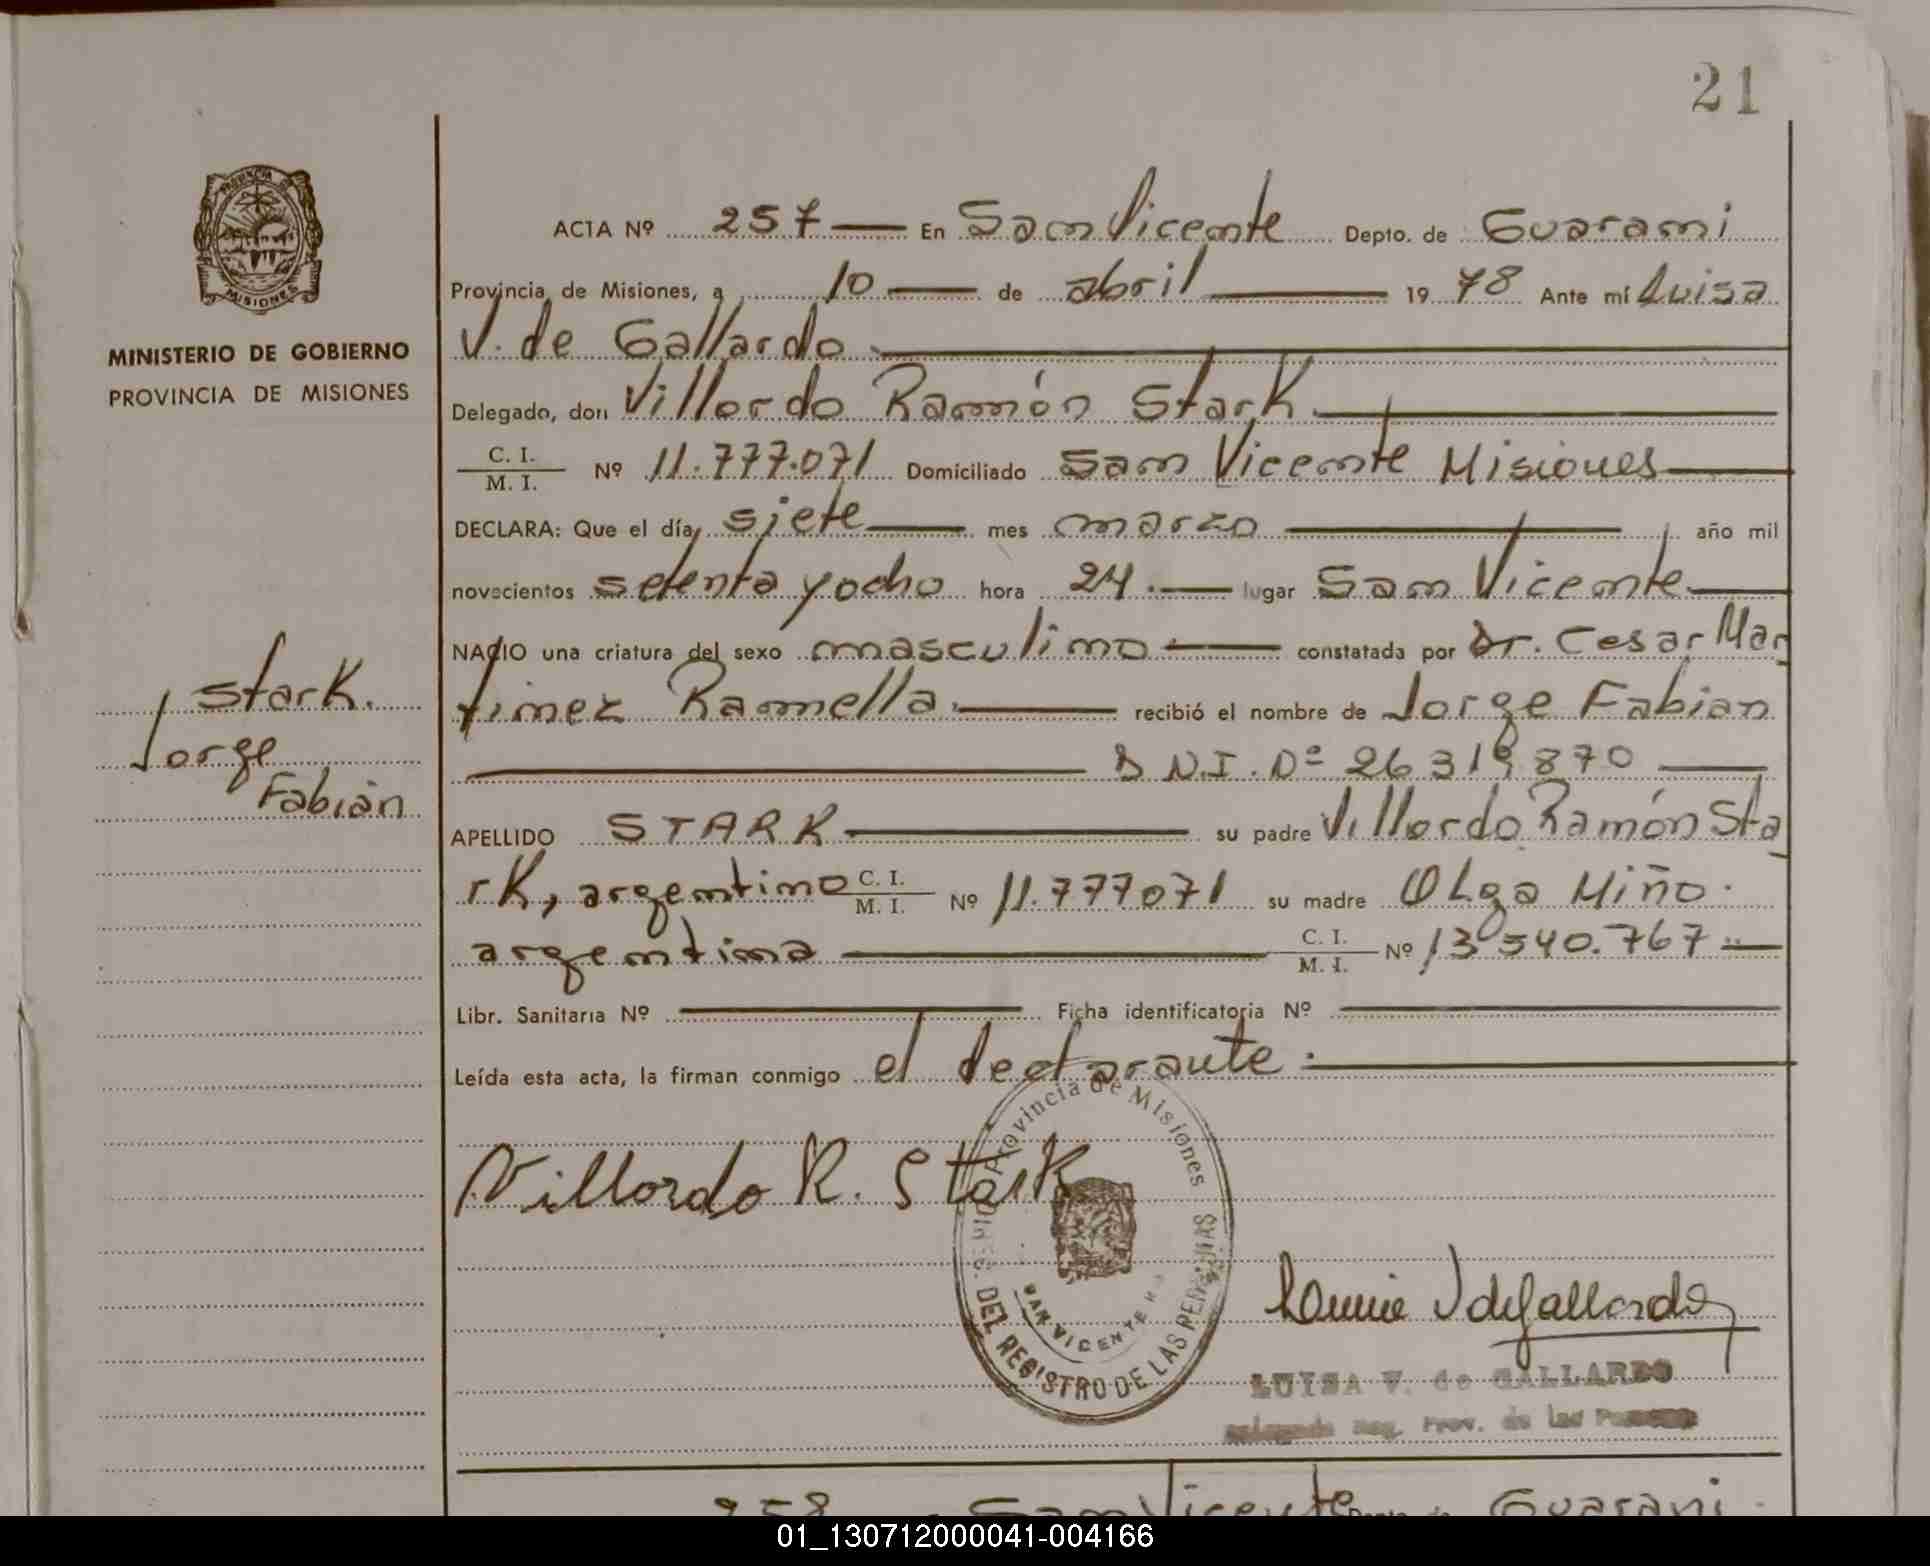 21
PROVINCIA DE
MISIONES
MINISTERIO DE GOBIERNO
PROVINCIA DE MISIONES
Stark.
Jorge
Fabián
ACTA Nº 257 — En San Vicente Depto. de Guarani
Provincia de Misiones, a 10 — de abril — 19 78 Ante mí Luisa
V. de Gallardo
Delegado, don Villordo Ramón Stark
C. I. / M. I. Nº 11.777.071 Domiciliado San Vicente Misiones
DECLARA: Que el día siete mes marzo año mil
novecientos setenta y ocho hora 24. — lugar San Vicente
NACIO una criatura del sexo masculino constatada por Dr. Cesar Mar
tinez Ramella. recibió el nombre de Jorge Fabian
D N.I. Nº 26 319 870
APELLIDO STARK su padre Villordo Ramón Sta
rk, argentino C. I. / M. I. Nº 11.777071 su madre Olga Miño.
argentina C. I. / M. I. Nº 13 540.767
Libr. Sanitaria Nº Ficha identificatoria Nº
Leída esta acta, la firman conmigo el declarante.
Villordo R. Stark
Provincia de Misiones
DEL REGISTRO DE LAS PERSONAS
SAN VICENTE
V de Gallardo
LUISA V. de GALLARDO
Delegada Reg. Prov. de las Personas
258 San Vicente Depto. de Guarani
01_130712000041-004166